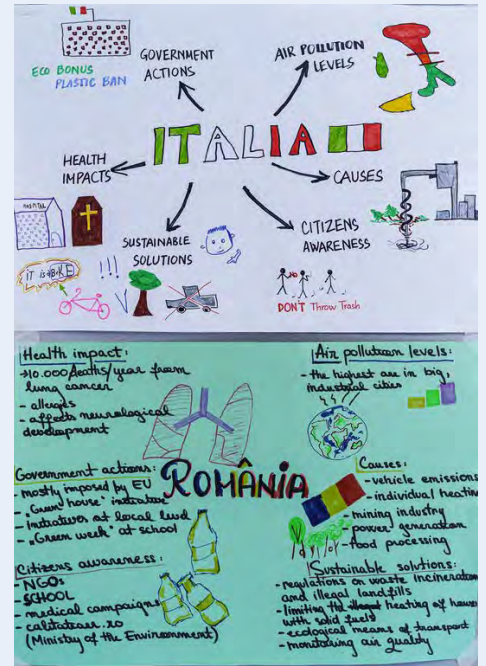 GOVERNMENT
ACTIONS
ECO BONUS
PLASTIC BAN
AIR POLLUTION
LEVELS
ITALIA
HEALTH
IMPACTS
HOSPITAL
CAUSES
SUSTAINABLE
SOLUTIONS
CITIZENS
AWARENESS
IT IS A BIKE
!!!
DON'T Throw Trash
Health impact:
→10.000 deaths/year from
lung cancer
- allergies
- affects neurological
development
Air pollution levels:
- the highest are in big,
industrial cities
Government actions:
- mostly imposed by EU
- „Green house" initiative
- Initiatives at local level
- „Green week" at school
ROMÂNIA
Causes:
- vehicle emissions
- individual heating
- mining industry
- power generation
- food processing
Citizens awareness:
- NGOs
- SCHOOL
- medical campaigns
- calitateaer.ro
(Ministry of the Environment)
Sustainable solutions:
- regulations on waste incineration
and illegal landfills
- limiting the heating of houses
with solid fuels
- ecological means of transport
- monitoring air quality